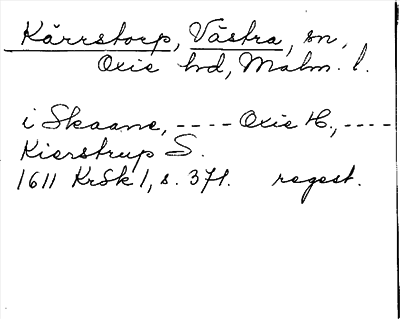 Kärrstorp, Västra, sn,
Oxie hd, Malm. l.
i Skaane, ---- Oxie H., ----
Kierstrup S.
1611 KrSk 1, s. 371. regest.